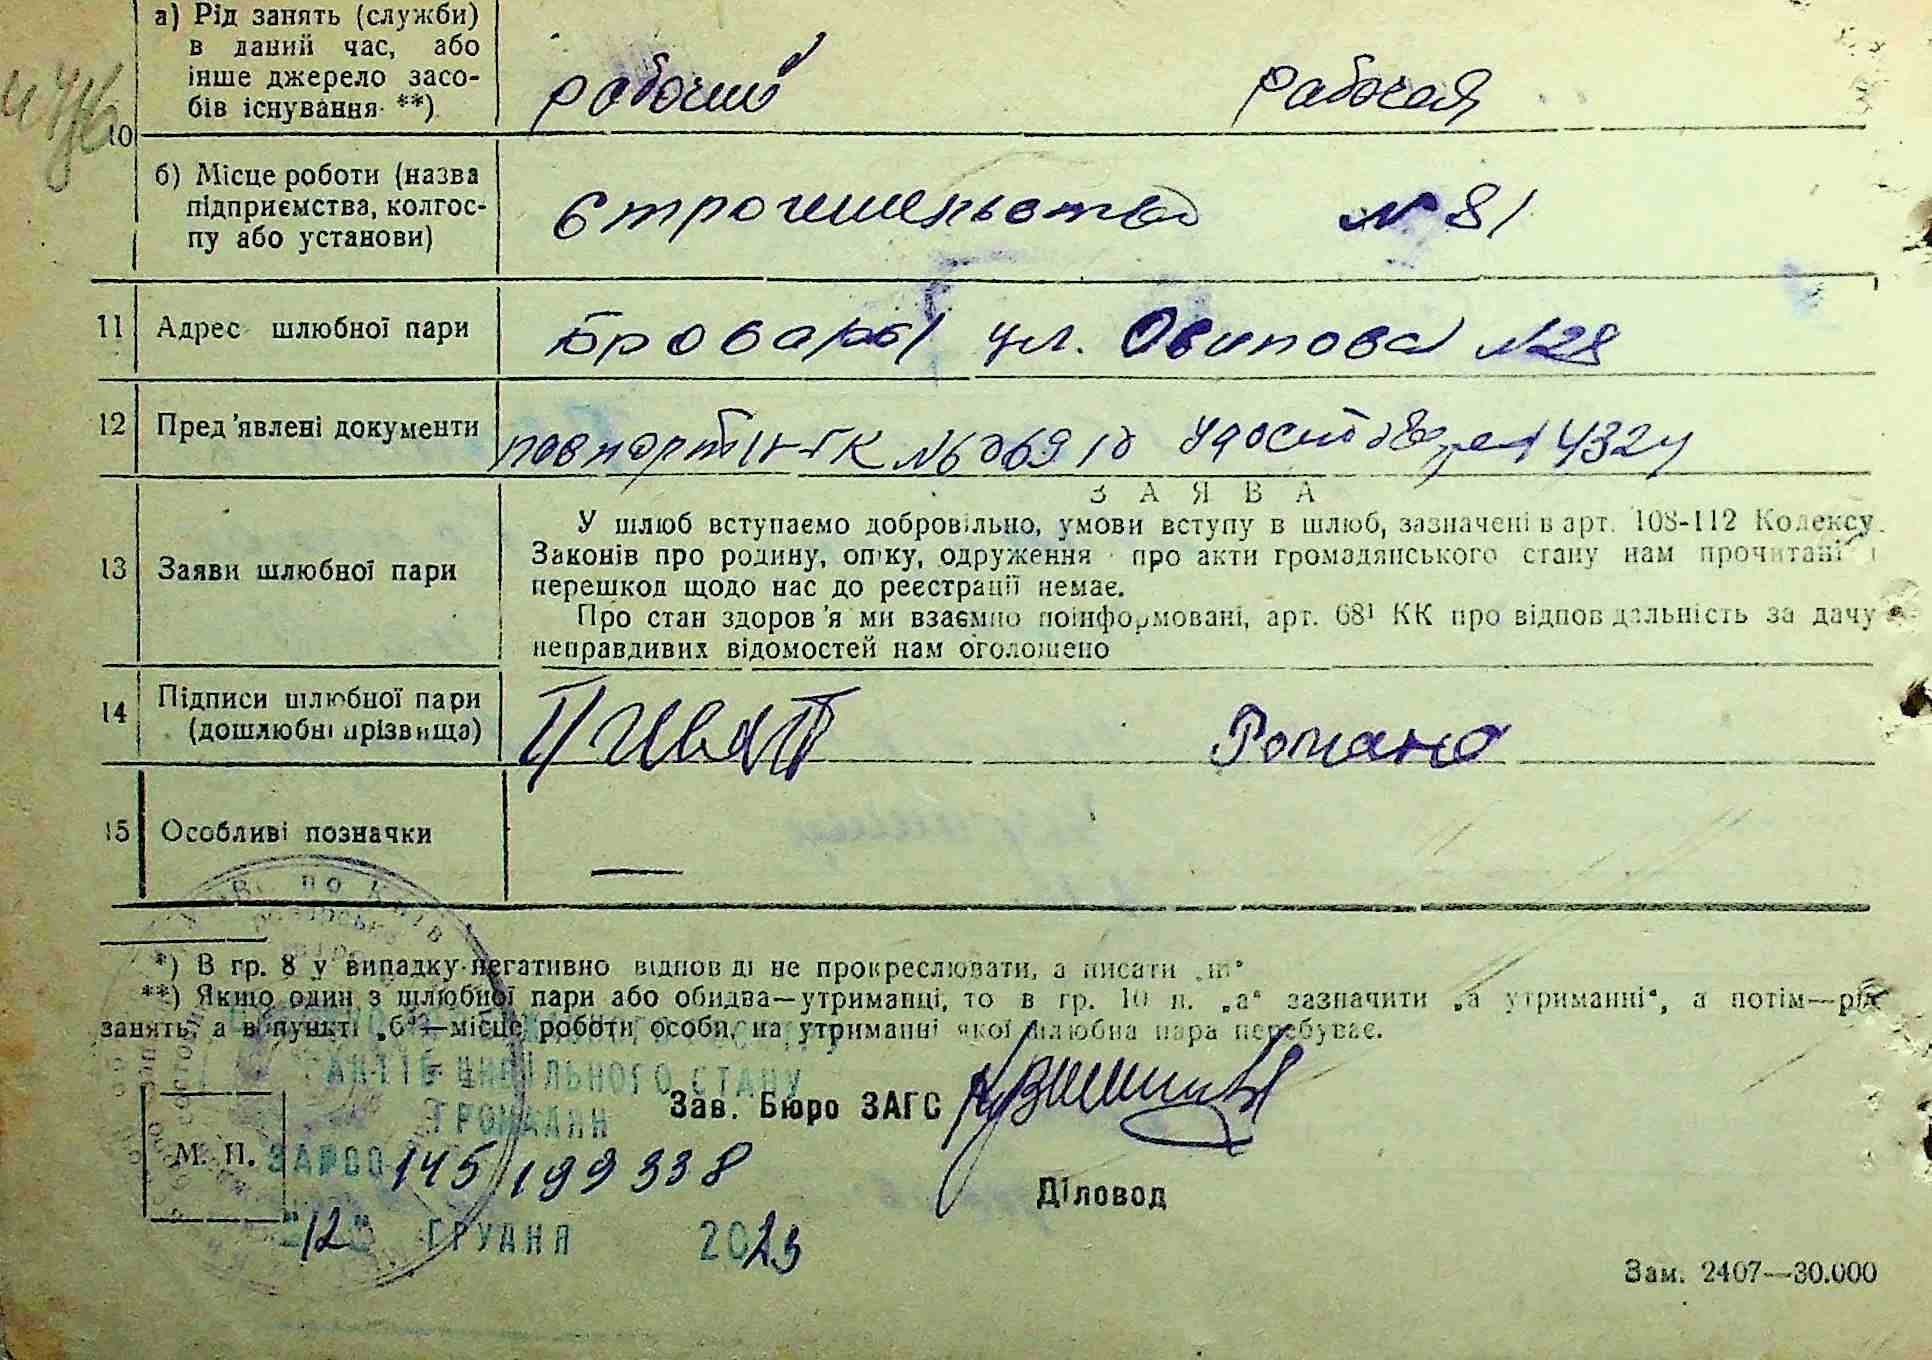 а) Рід занять (служби)
в даний час, або
інше джерело засо-
бів існування **)
рабочий рабочая
10
б) Місце роботи (назва
підприємства, колгос-
пу або установи)
Строительство №81
11 Адрес шлюбної пари
Бровары ул. Осипова №28
12 Пред'явлені документи
паспорт №606910 4324
З А Я В А
13 Заяви шлюбної пари
У шлюб вступаємо добровільно, умови вступу в шлюб, зазначені в арт. 108-112 Кодексу
Законів про родину, опіку, одруження про акти громадянського стану нам прочитані і
перешкод щодо нас до реєстрації немає.
Про стан здоров'я ми взаємно поінформовані, арт. 68¹ КК про відповідальність за дачу
неправдивих відомостей нам оголошено
14 Підписи шлюбної пари
(дошлюбні прізвища)
15 Особливі позначки —
*) В гр. 8 у випадку негативно відповіді не прокреслювати, а писати „ні"
**) Якщо один з шлюбної пари або обидва—утриманці, то в гр. 10 п. „а" зазначити „а утриманні", а потім—рід
занять, а в пункті „б"—місце роботи особи, на утриманні якої шлюбна пара перебуває.
АКТІВ ЦИВІЛЬНОГО СТАНУ
ГРОМАДЯН
Зав. Бюро ЗАГС
М. П.
145/199338
Діловод
"12" ГРУДНЯ 2023
Зам. 2407—30.000